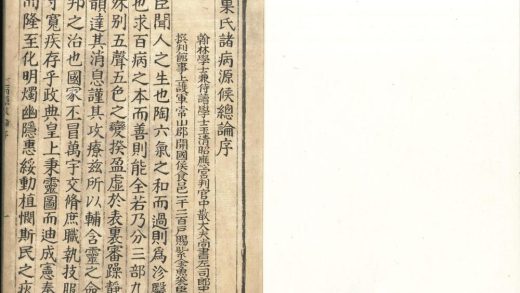 巢氏諸病源候總論序
翰林學士兼侍讀學士玉清昭應宮判官中散大夫尚書左司郎中
撰判館事上護軍常山郡開國侯食邑二千二百戶賜紫金魚袋臣
臣聞人之生也陶六氣之和而過則爲沴醫
也求百病之本而善則能全若乃分三部九
殊別五聲五色之變揆盈虛於表裏審躁靜
韻達其消息謹其攻療茲所以輔含靈之命
邦之治也國家丕冒萬宇交脩庶職執技服
寬疾存乎政典皇上秉靈圖而迪成憲奉
而隆至化明燭幽隱惠綏動植憫斯民之疾